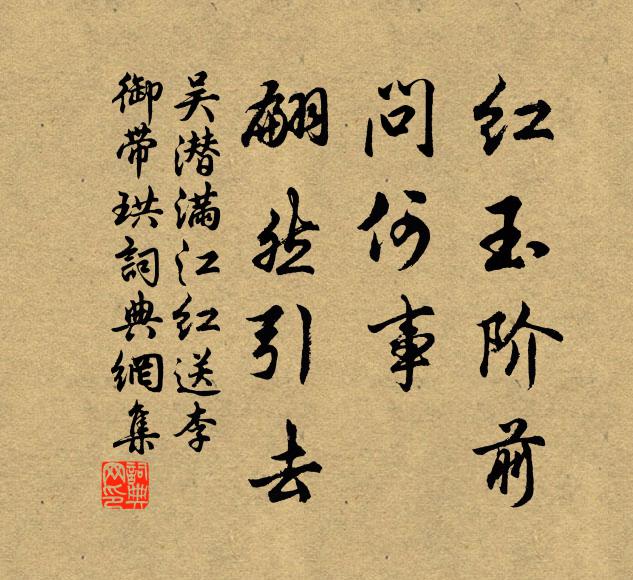 红玉阶前
问何事
翩然引去
吴潜满江红送李
御带珙詞典網集
詞典网印